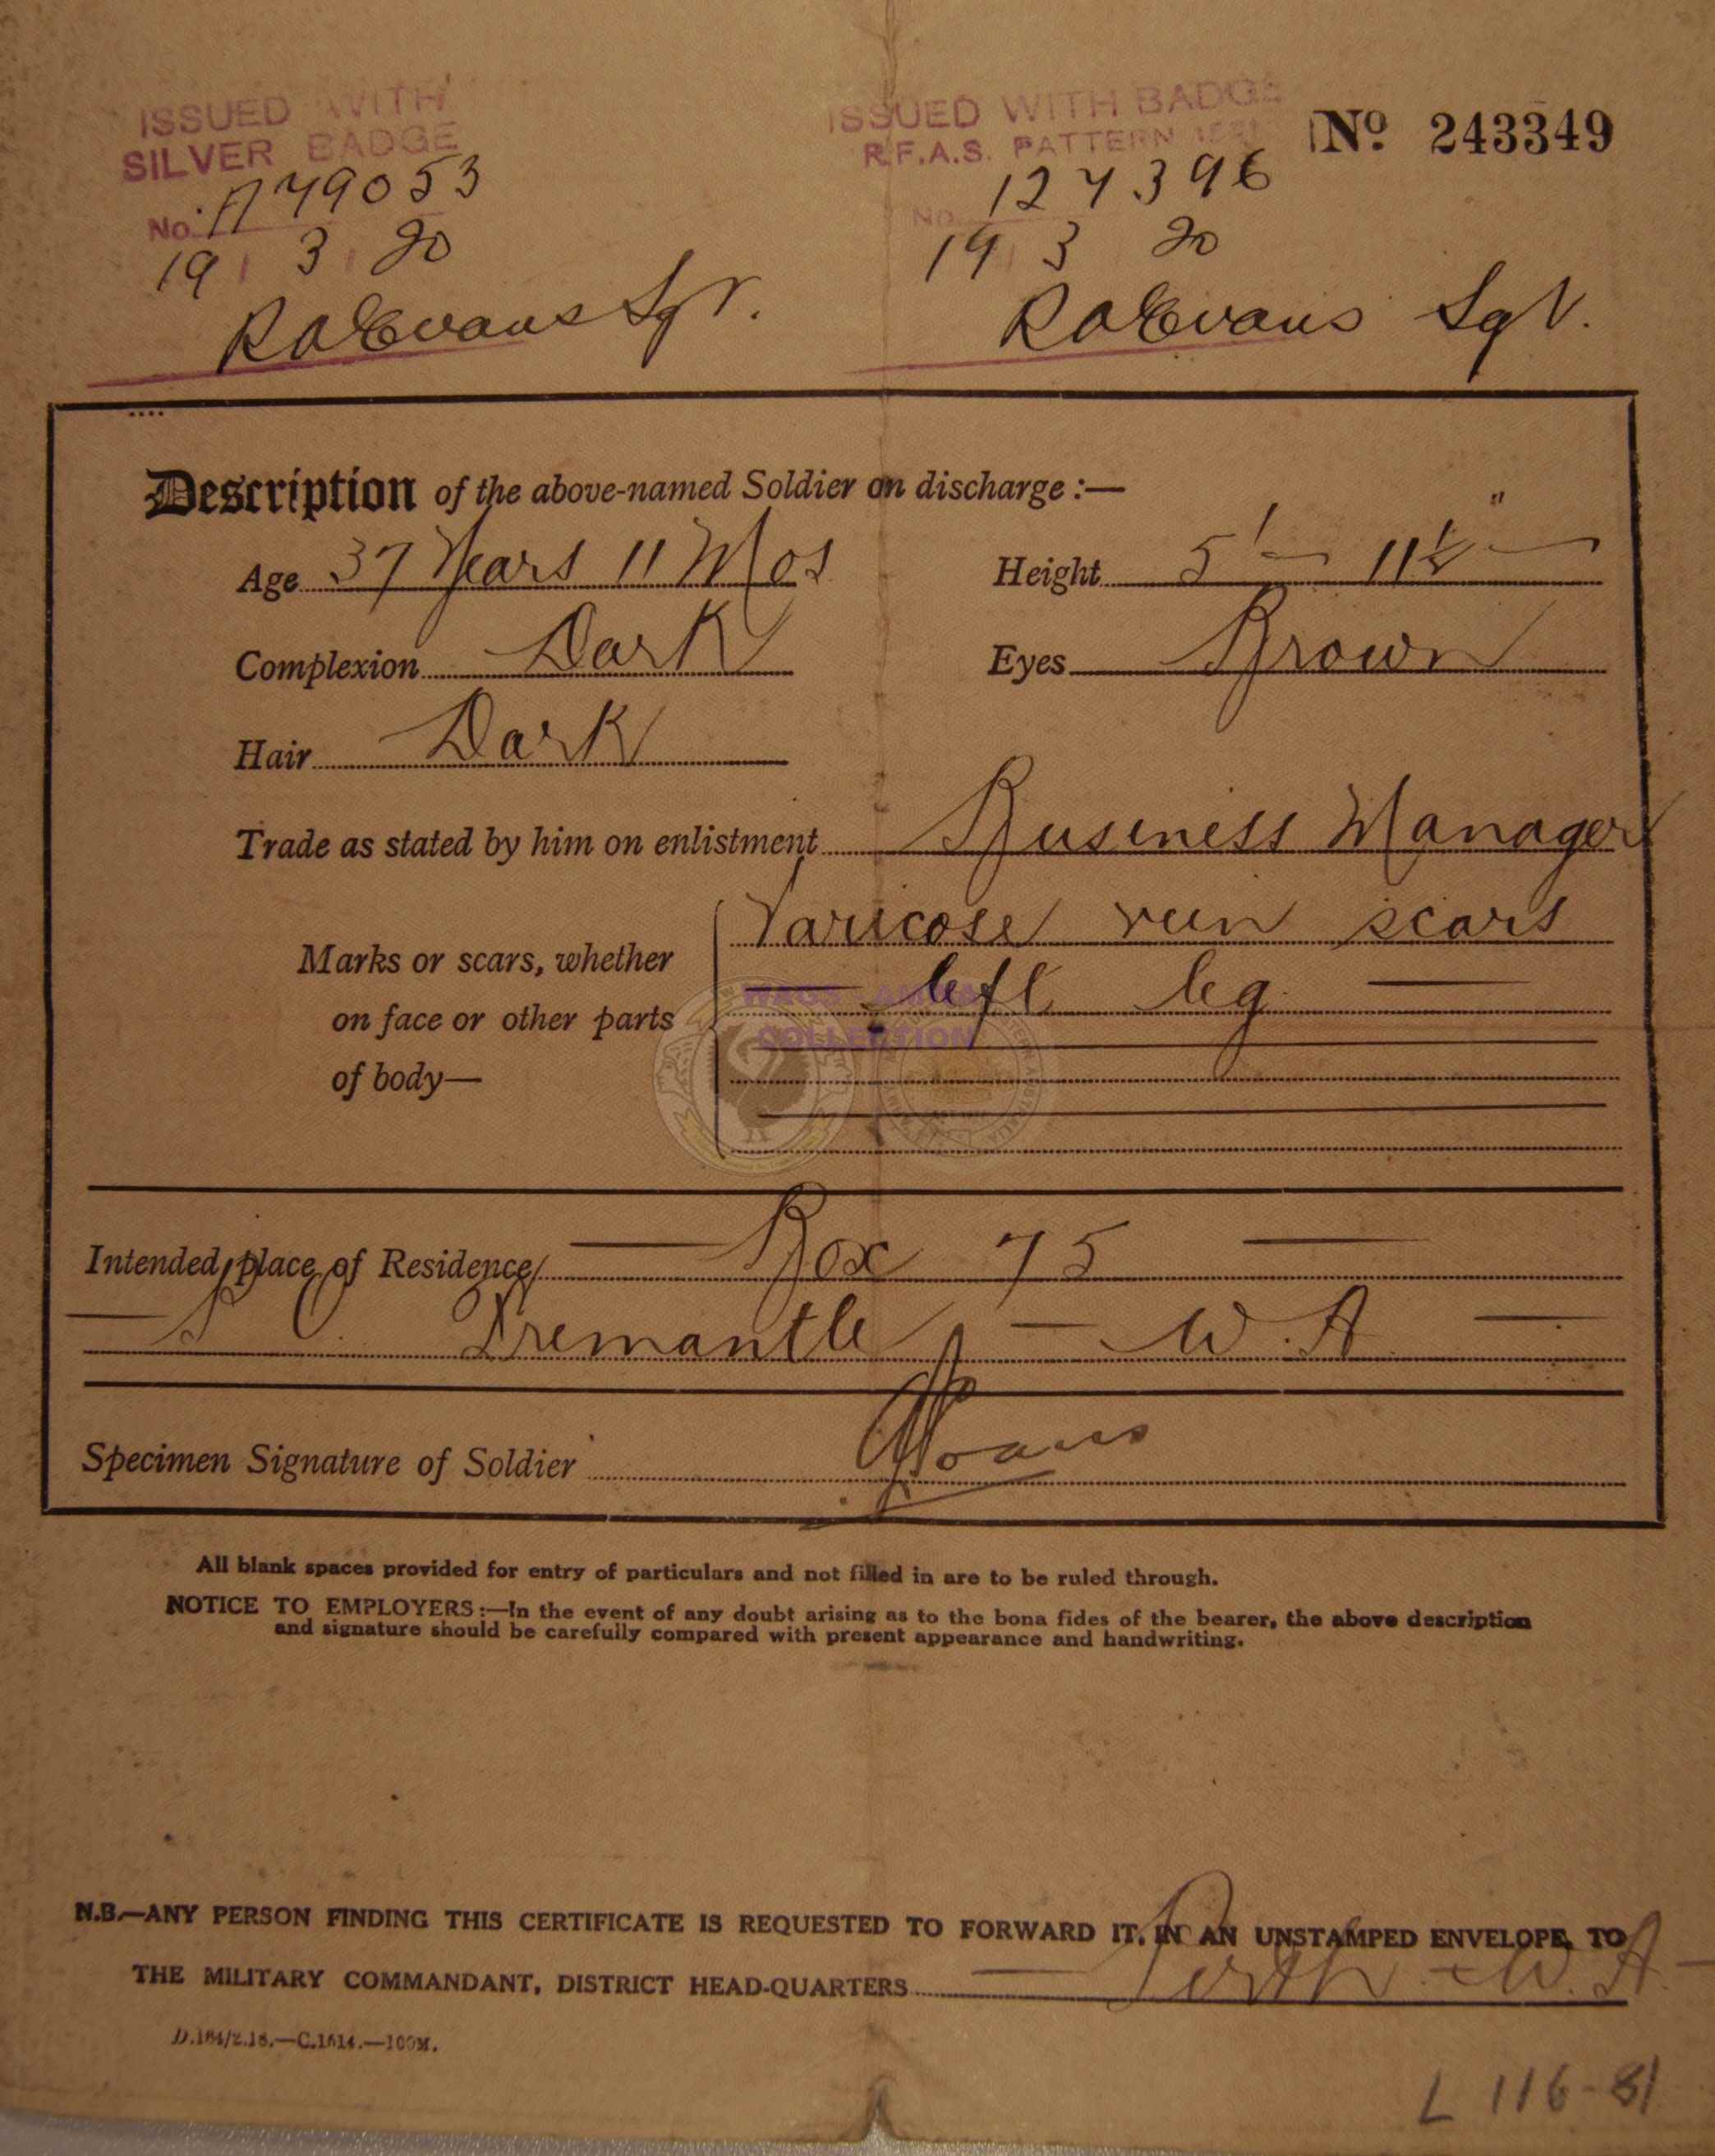 ISSUED WITH
SILVER BADGE
No. A79053
19 3 20
R A Evans Sgt.
ISSUED WITH BADGE
R.F.A.S. PATTERN
No. 127396
19 3 20
R A Evans Sgt.
No 243349
Description of the above-named Soldier on discharge :—
Age 37 Years 11 Mos Height 5' — 11½"
Complexion Dark Eyes Brown
Hair Dark
Trade as stated by him on enlistment Business Manager
Marks or scars, whether on face or other parts of body— Varicose vein scars
left leg
WAGS ANMM
COLLECTION
Intended place of Residence Box 75
Fremantle — W.A
Specimen Signature of Soldier
All blank spaces provided for entry of particulars and not filled in are to be ruled through.
NOTICE TO EMPLOYERS :—In the event of any doubt arising as to the bona fides of the bearer, the above description
and signature should be carefully compared with present appearance and handwriting.
N.B.—ANY PERSON FINDING THIS CERTIFICATE IS REQUESTED TO FORWARD IT, IN AN UNSTAMPED ENVELOPE, TO
THE MILITARY COMMANDANT, DISTRICT HEAD-QUARTERS Perth — W.A
D.184/2.18.—C.1614.—100M.
L 116-81